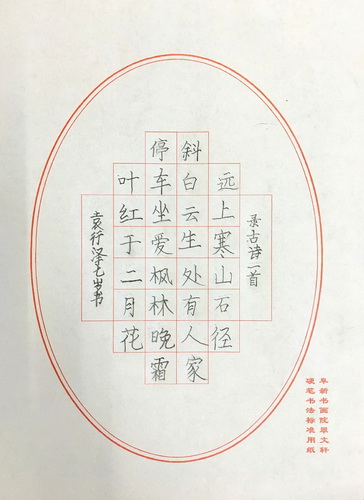 录古诗一首
远上寒山石径
斜白云生处有人家
停车坐爱枫林晚霜
叶红于二月花
袁行泽七岁书
阜新书画院翠文轩
硬笔书法标准用纸